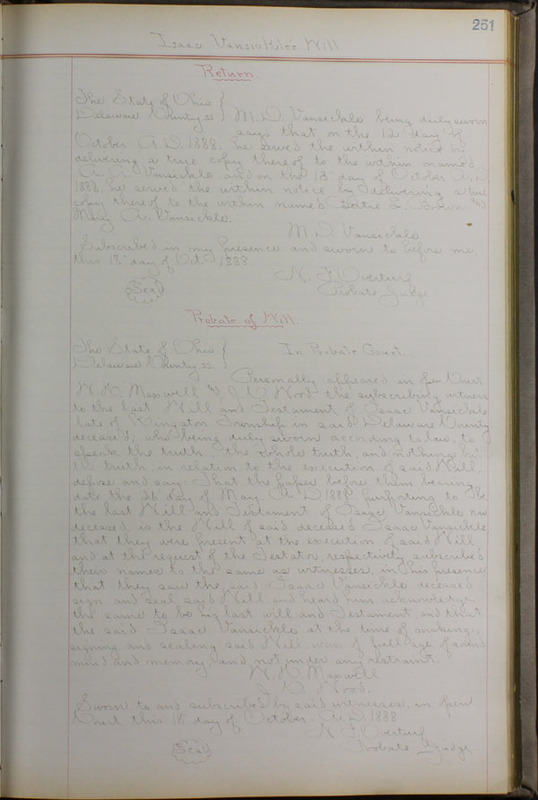 251
Isaac Vansickle's Will
Return.
The State of Ohio }
Delaware County ss } M. D. Vansickle being duly sworn
says that on the 12 day of
October A. D. 1888, he served the within notice by
delivering a true copy thereof to the within named
A. Vansickle and on the 13" day of October A. D.
1888, he served the within notice by delivering a true
copy thereof to the within named L. Brown and
Mary A. Vansickle.
M. D. Vansickle
Subscribed in my presence and sworn to before me,
this 18" day of Oct. 1888
N. F. Overturf
(Seal) Probate Judge
Probate of Will.
The State of Ohio } In Probate Court.
Delaware County ss }
Personally appeared in open Court
W. H. Maxwell and J. D. Wood the subscribing witness
to the last Will and Testament of Isaac Vansickle
late of Kingston Township in said Delaware County
deceased, who being duly sworn according to law, to
speak the truth, the whole truth, and nothing but
the truth in relation to the execution of said Will,
depose and say: That the paper before them bearing
date the 26 day of May A. D. 1888 purporting to be
the last Will and Testament of Isaac Vansickle now
deceased, is the Will of said deceased Isaac Vansickle
that they were present at the execution of said Will
and at the request of the Testator, respectively subscribed
their names to the same as witnesses, in his presence
that they saw the said Isaac Vansickle deceased
sign and seal said Will and heard him acknowledge
the same to be his last will and Testament, and that
the said Isaac Vansickle at the time of making,
signing and sealing said Will, was of full age of sound
mind and memory, and not under any restraint.
W. H. Maxwell
J. D. Wood.
Sworn to and subscribed by said witnesses, in open
Court this 18 day of October A. D. 1888
N. F. Overturf
(Seal) Probate Judge